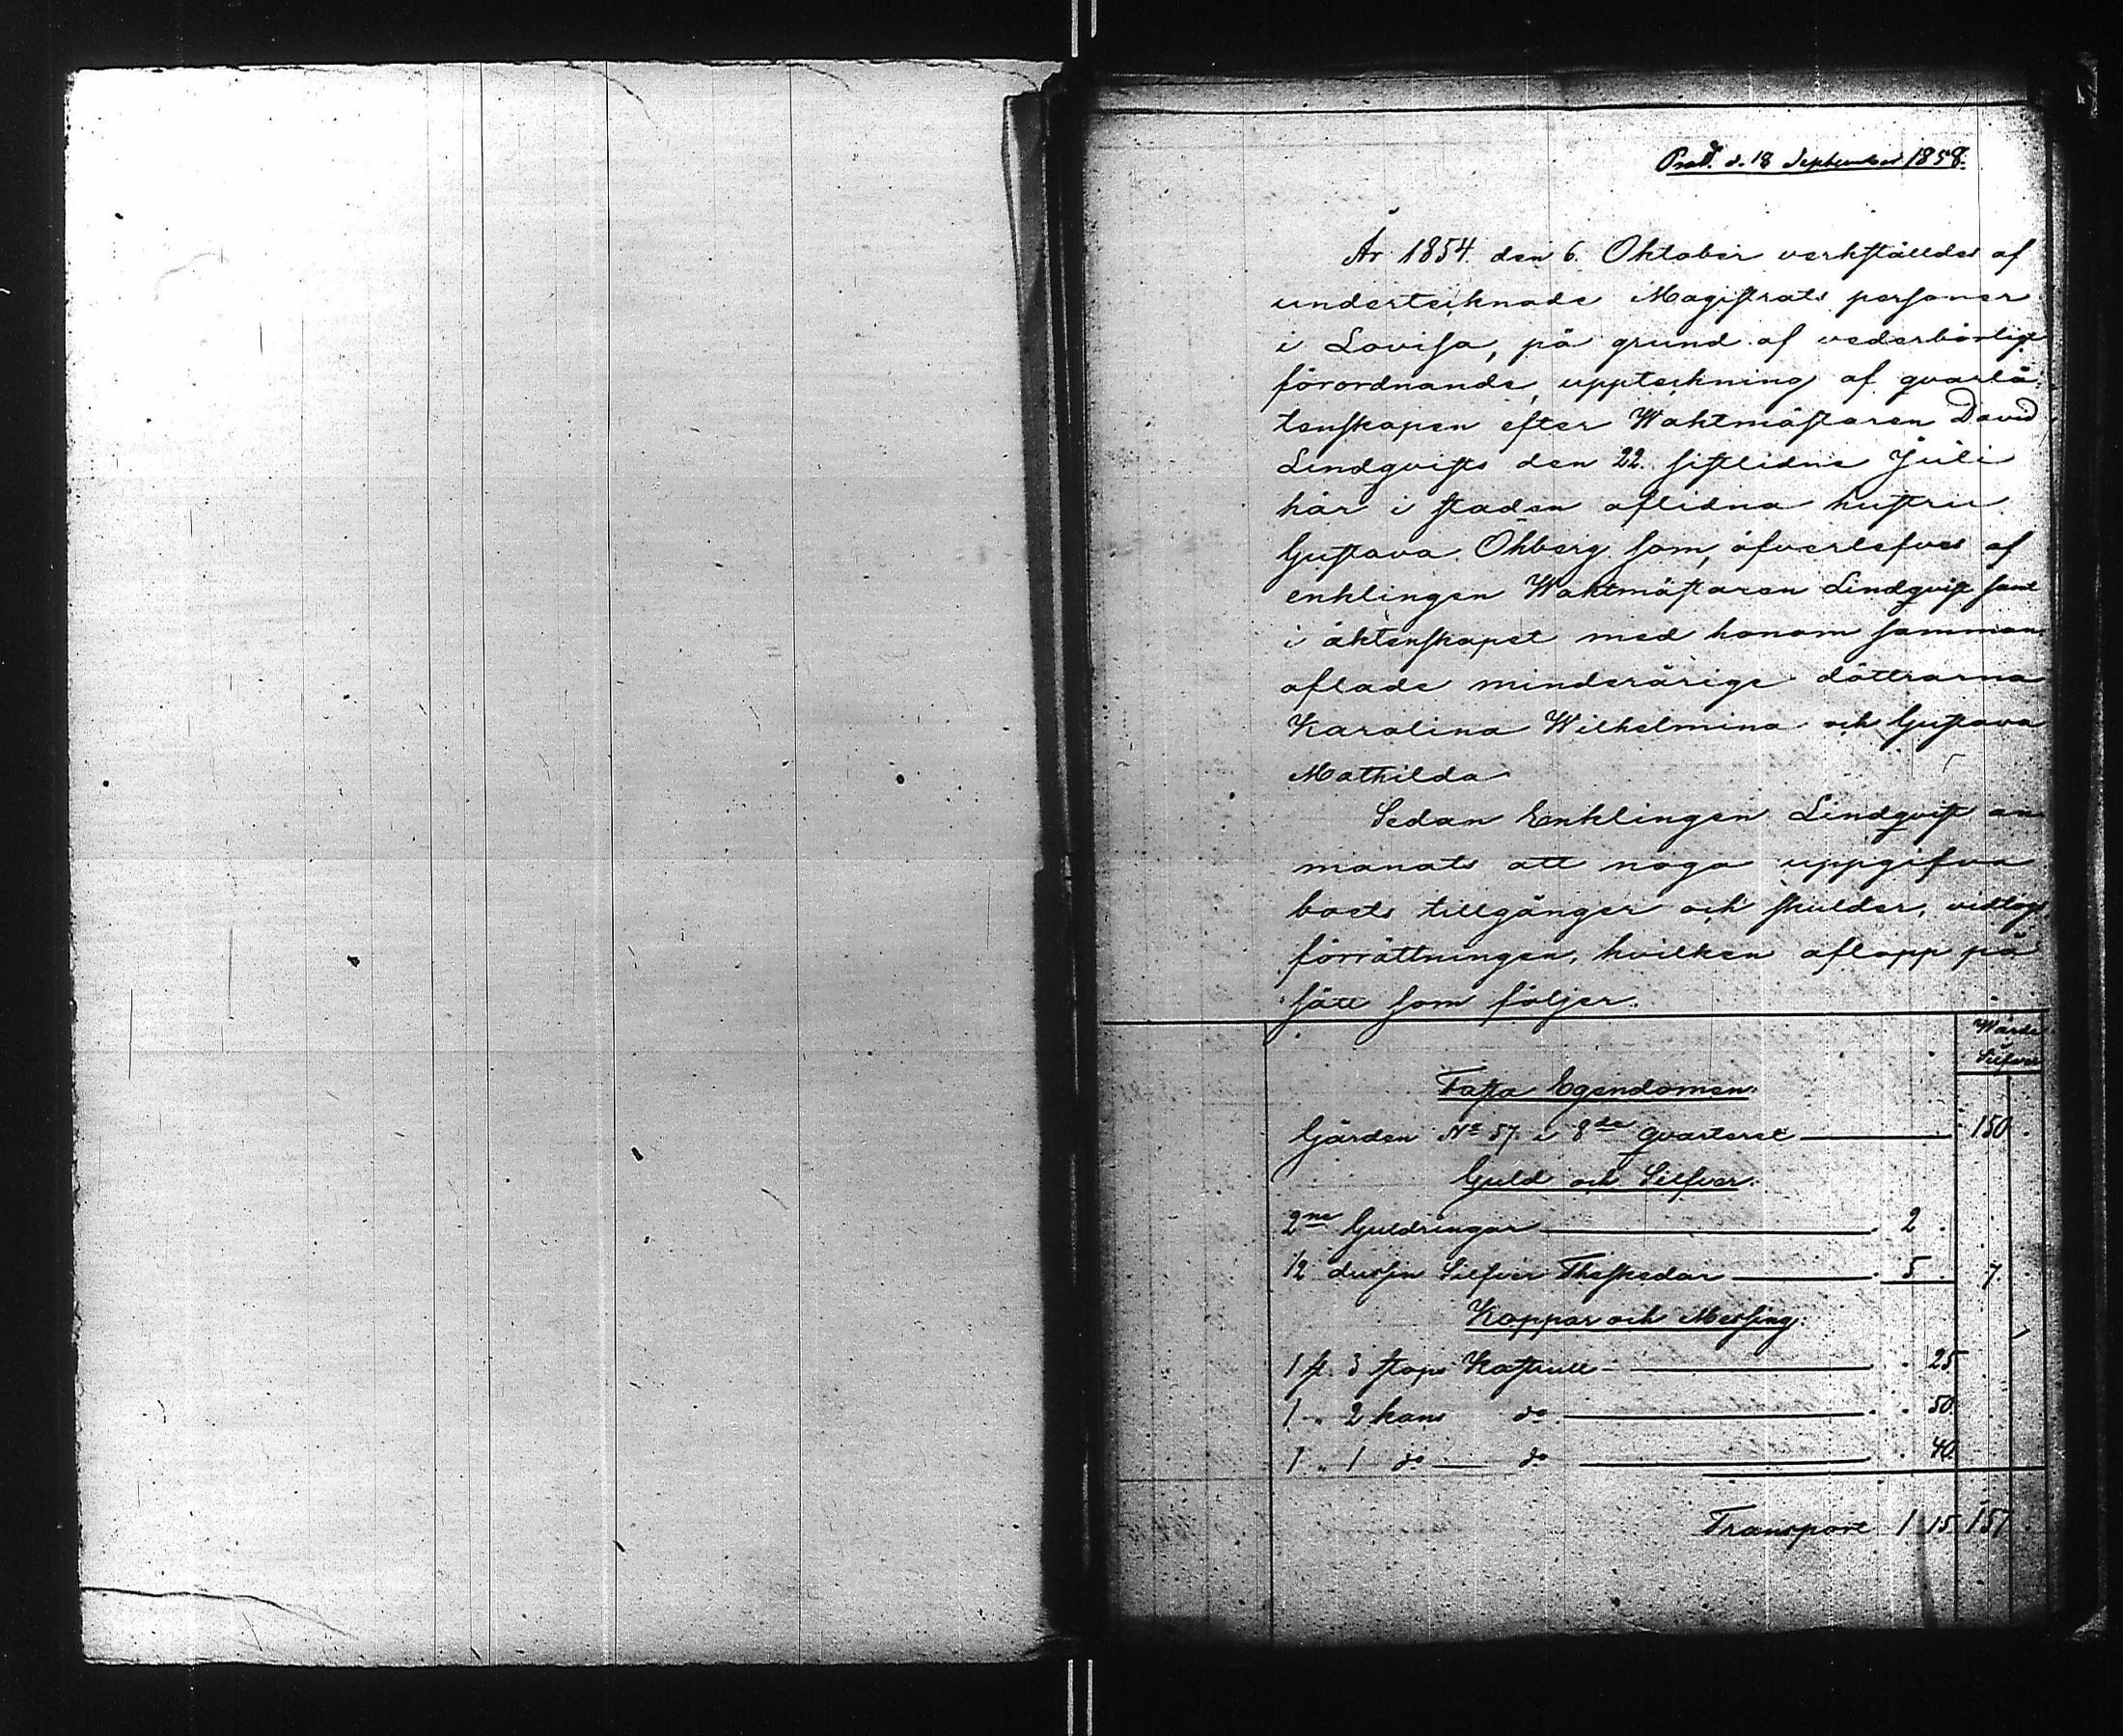 Prod. d. 18 September 1858.
År 1854 den 6. Oktober verkställdes af
undertecknade Magistrats personer
i Lovisa, på grund af vederbörligt
förordnande, uppteckning af qvarlå-
tenskapen efter Waktmästaren David
Lindqvists den 22. sistlidne Juli
här i staden aflidna hustru
Gustava Öhberg som, öfverlefves af
enklingen Waktmästaren Lindqvist samt
i äktenskapet med honom samman-
aflade minderårige döttrarna
Karolina Wilhelmina och Gustava
Mathilda
Sedan Enklingen Lindqvist an-
manats att noga uppgifva
boets tillgångar och skulder, vidtogs
förrättningen, hvilken aflopp på
sätt som följer.
Wärde
Silfver
Fasta Egendomen.
Gården No 57. i 8de qvarteret 150.
Guld och Silfver.
2ne Guldringar 2.
12 dussin Silfver Theskedar 5. 7.
Koppar och Messing.
1 st. 3 stops Kastrull 25
1 „ 2 kans do 50.
1 „ 1 do do 40.
Transport 1 15 157.